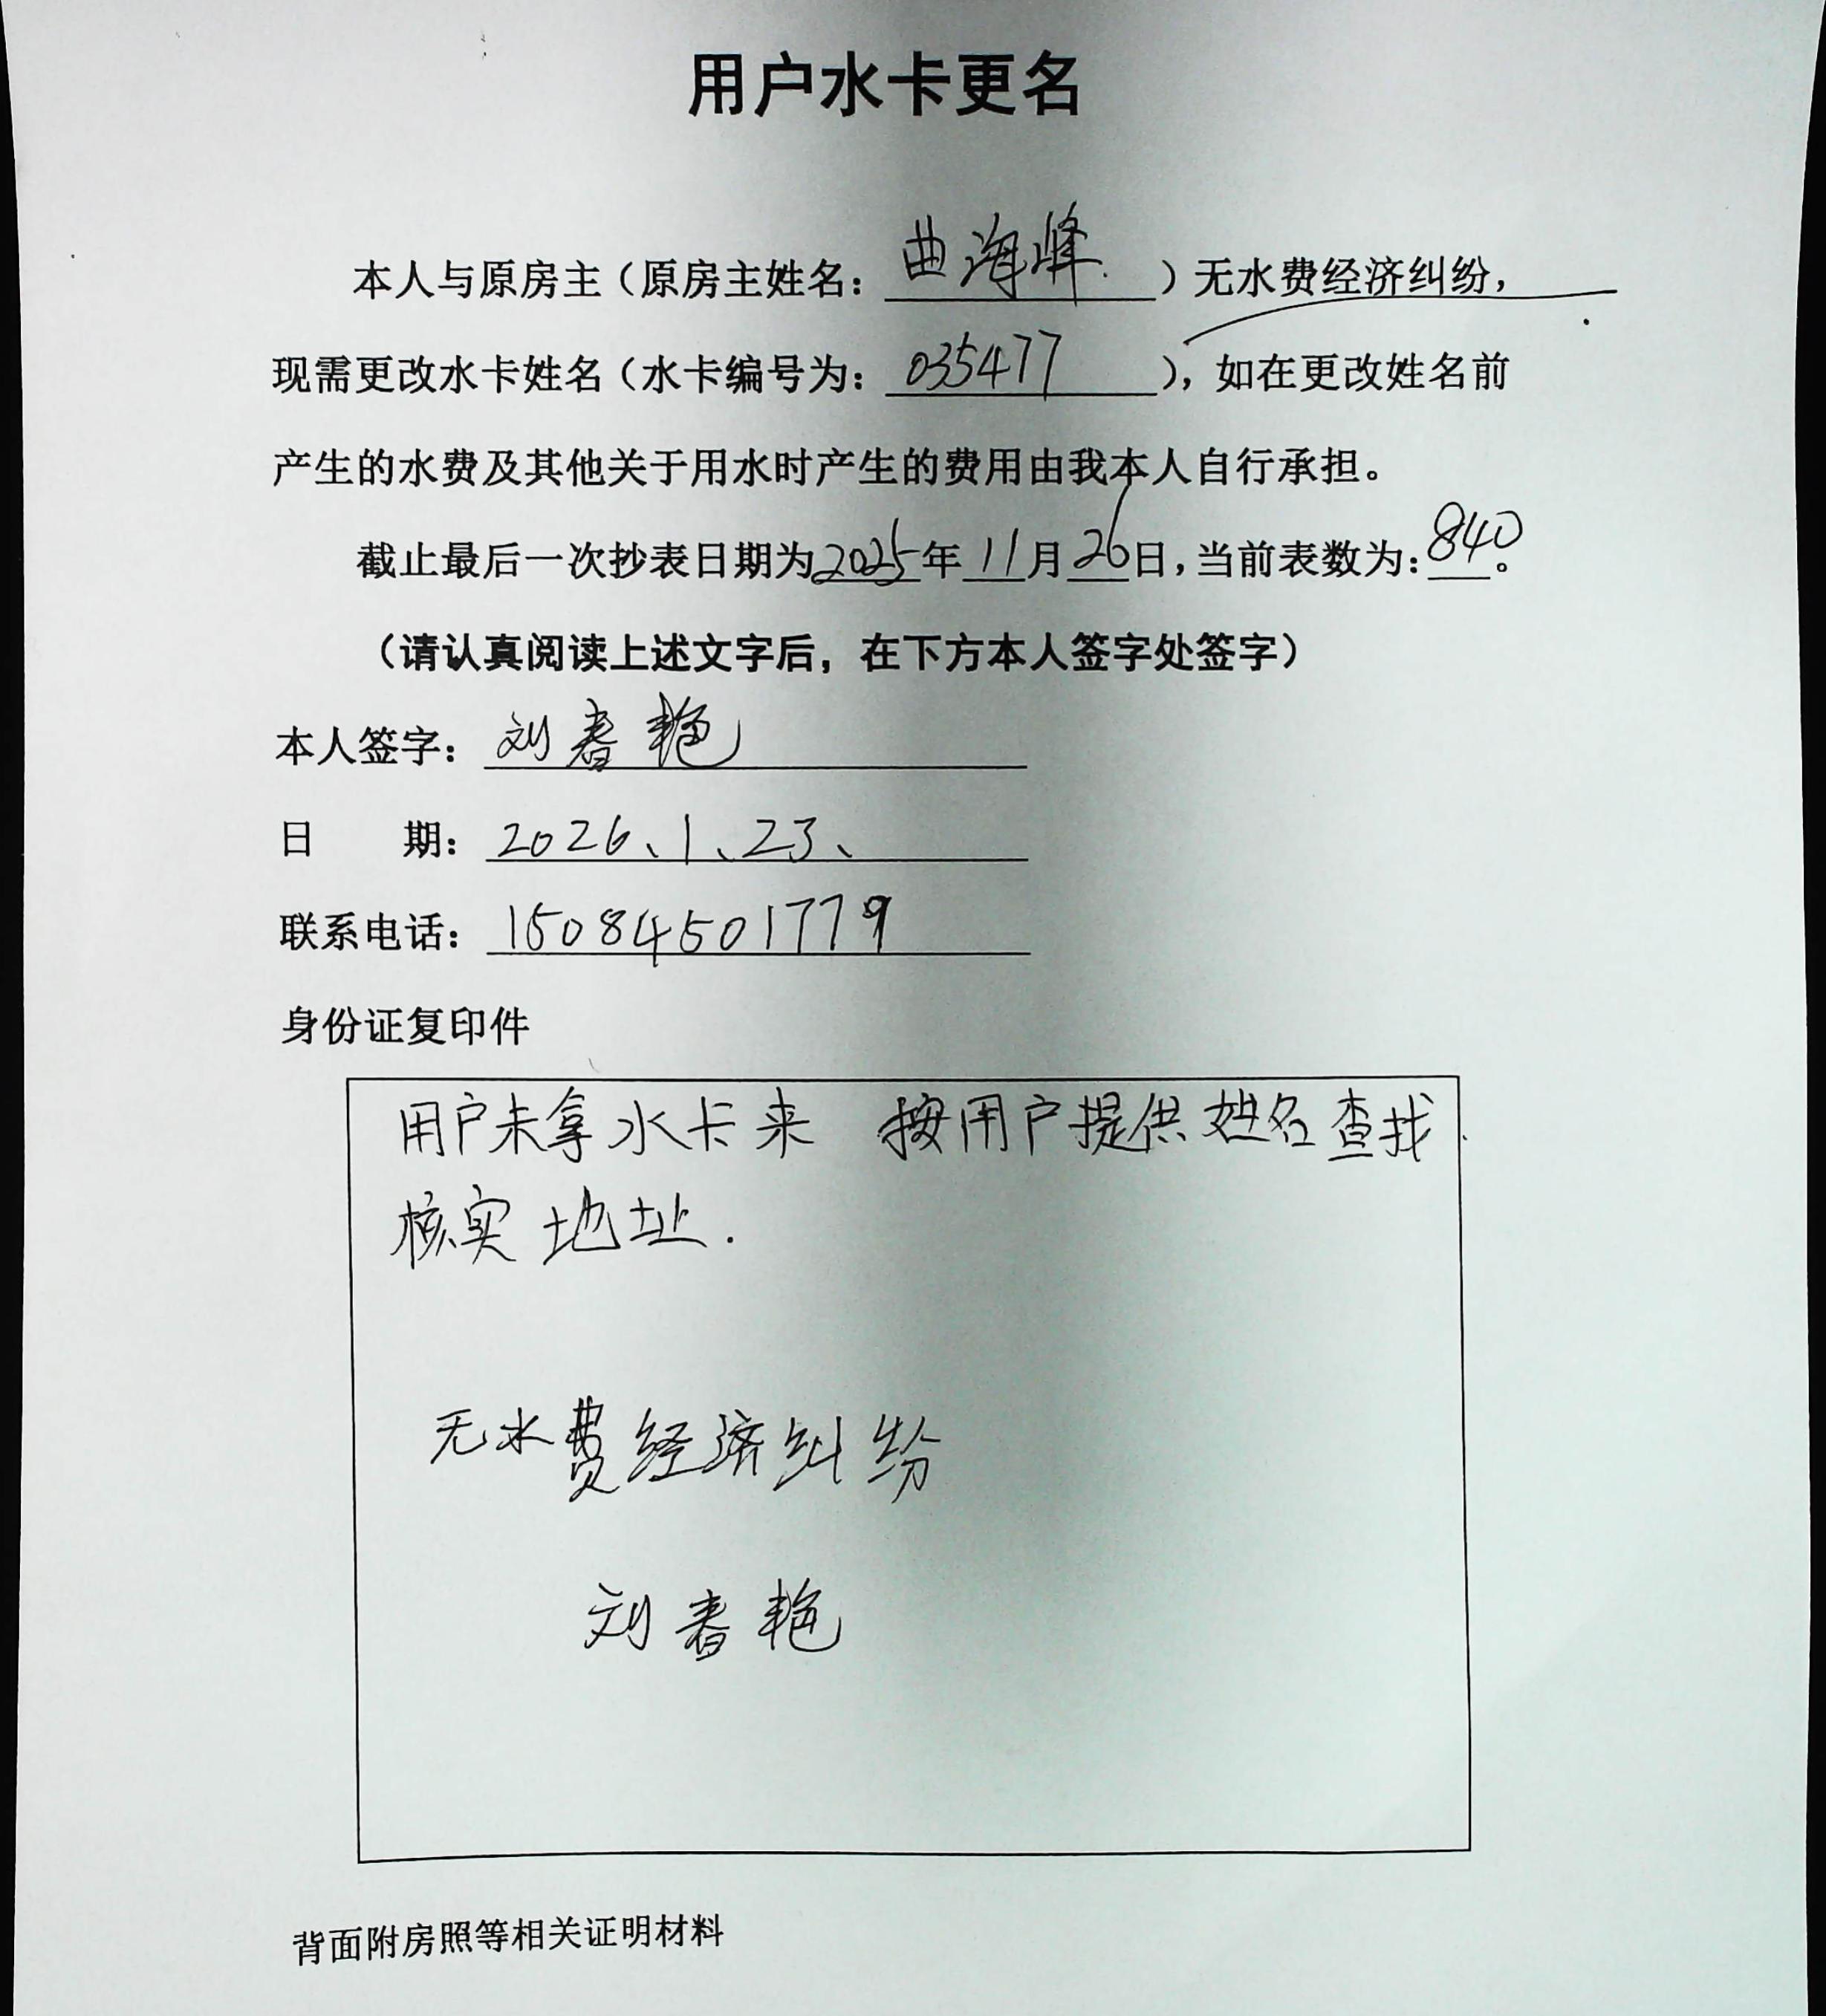 用户水卡更名
本人与原房主（原房主姓名：曲海峰.）无水费经济纠纷，
现需更改水卡姓名（水卡编号为：035477），如在更改姓名前
产生的水费及其他关于用水时产生的费用由我本人自行承担。
截止最后一次抄表日期为2025年11月26日，当前表数为：840。
（请认真阅读上述文字后，在下方本人签字处签字）
本人签字：刘春艳
日 期：2026、1、23、
联系电话：15084501779
身份证复印件
用户未拿水卡来 按用户提供姓名查找.
核实地址.
无水费经济纠纷
刘春艳
背面附房照等相关证明材料